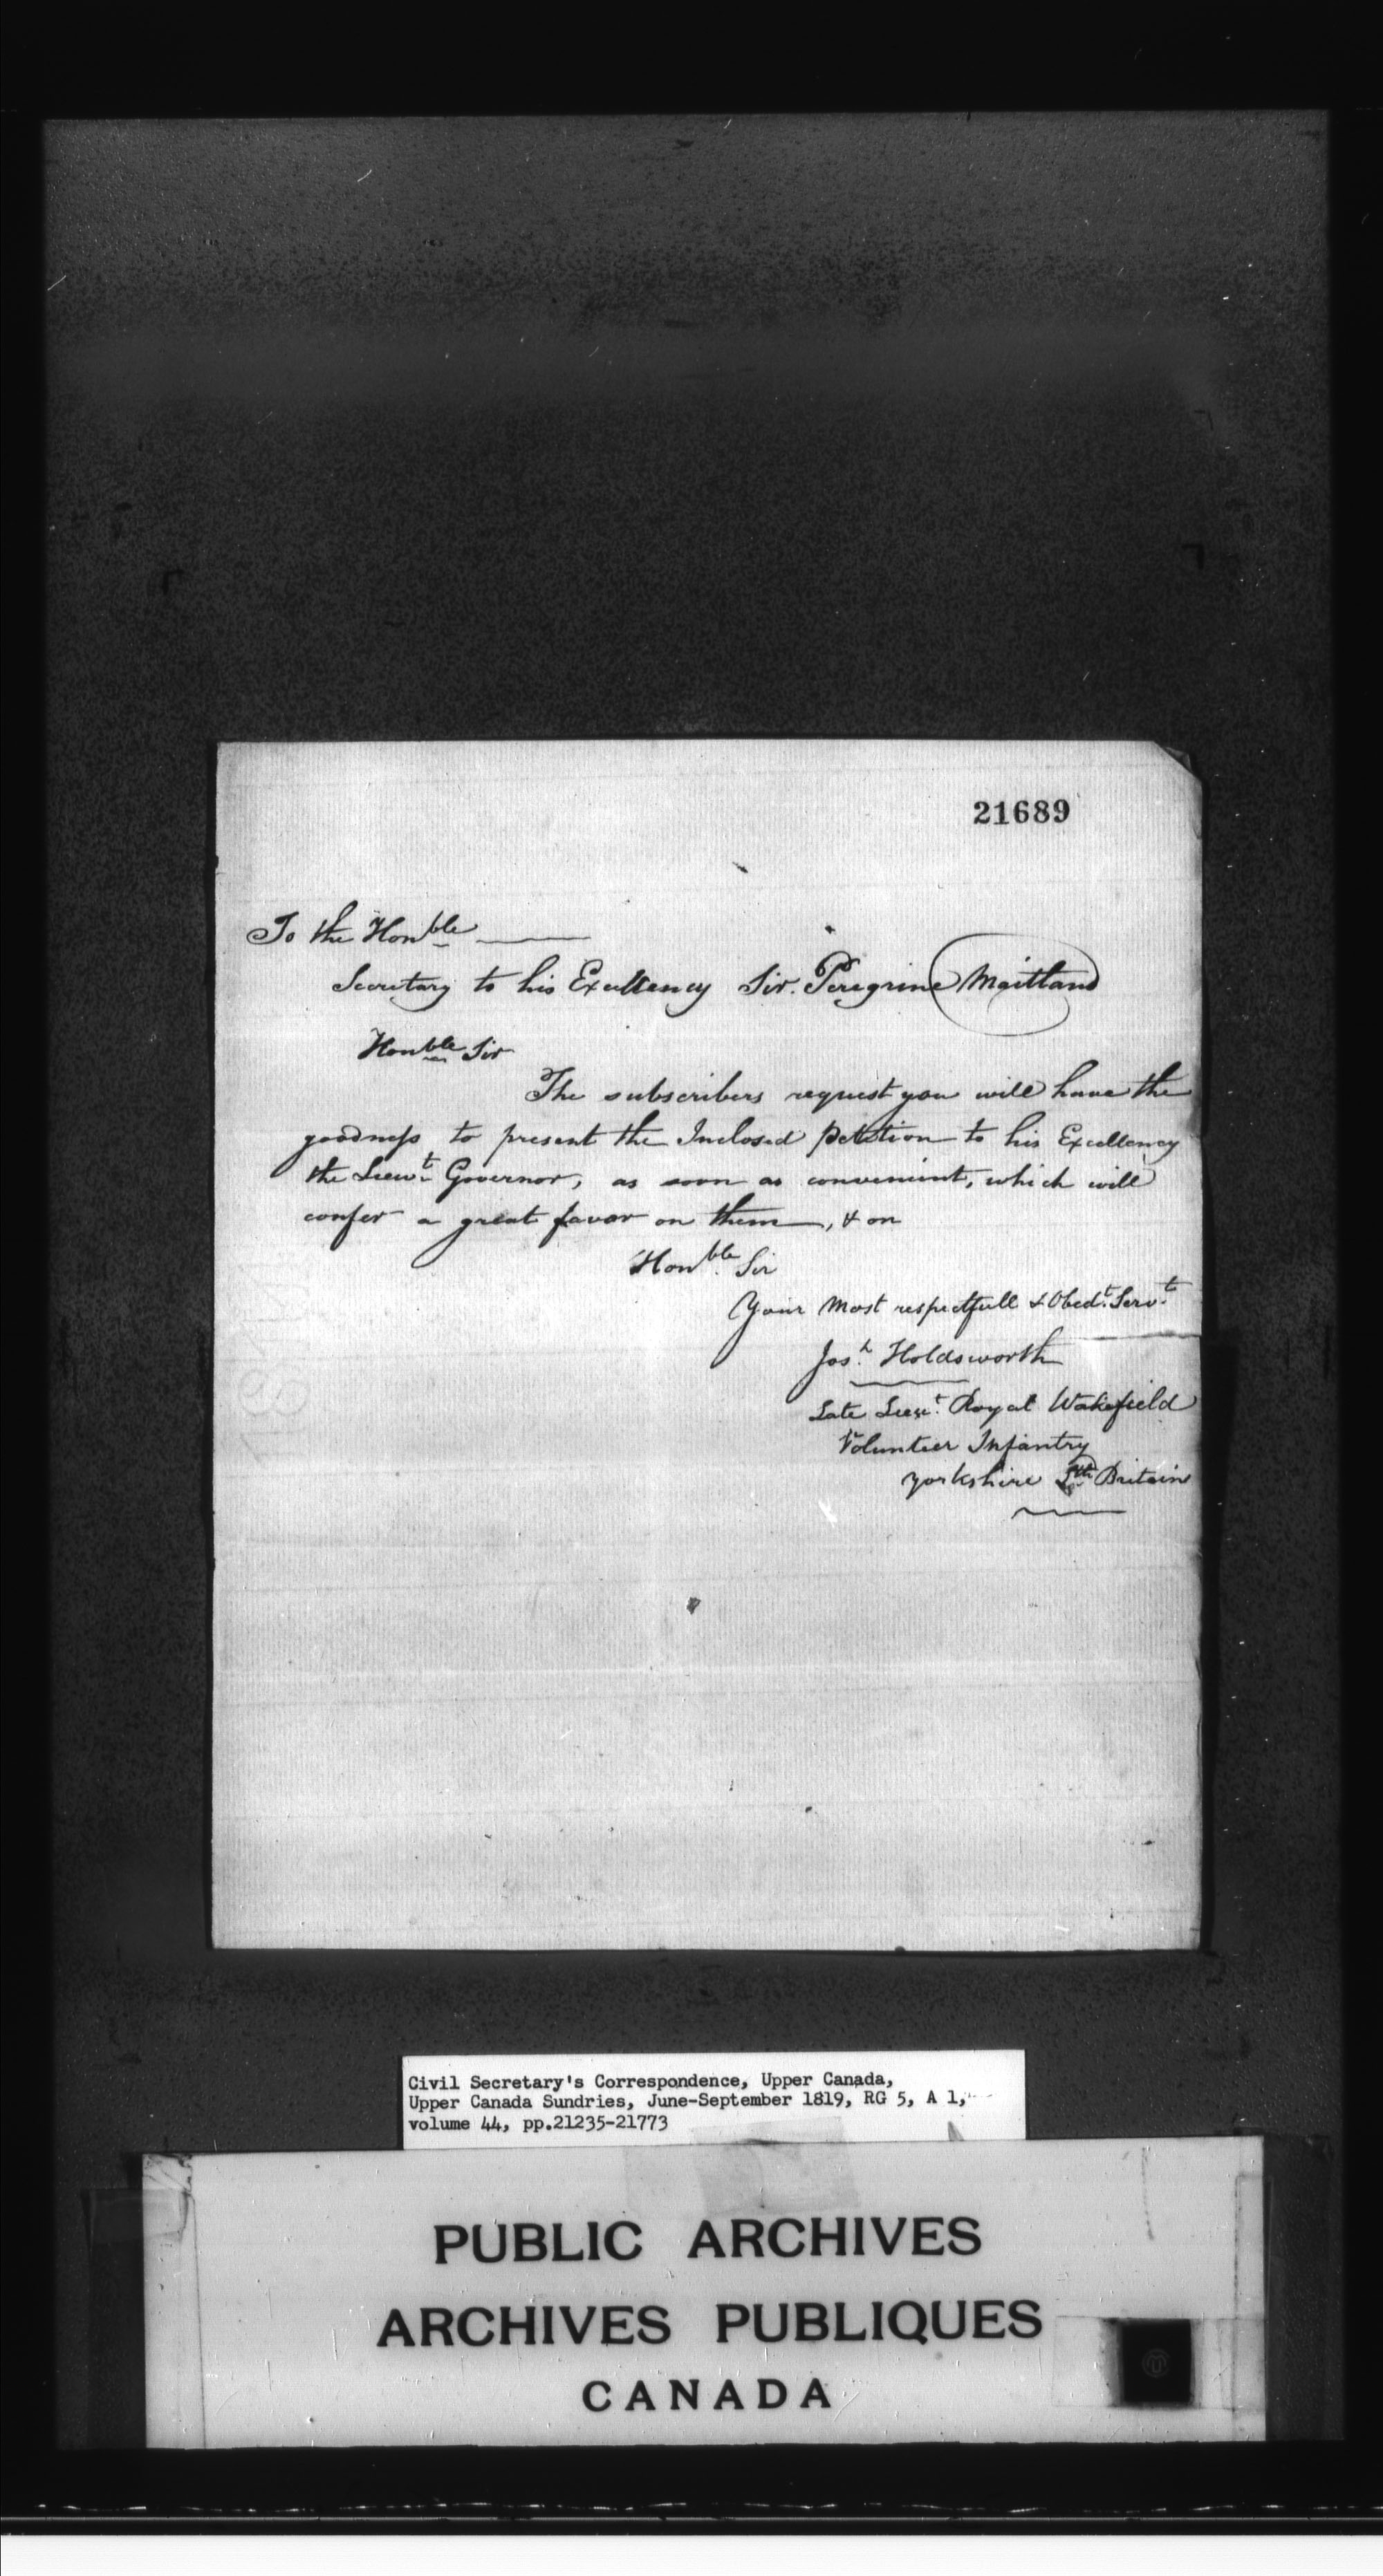 21689
To the Honble
Secretary to his Excellency Sir. Peregrine Maitland
Honble Sir
The subscribers request you will have the
goodness to present the Inclosed petetion to his Excellency
the Lieut Governor, as soon as convenient, which will
confer a great favor on them, & on
Honble. Sir
Your Most respectfull & Obedt. Servt.
Josh. Holdsworth
Late Lieut. Royal Wakefield
Voluntier Infantry
Yorkshire Britain
Civil Secretary's Correspondence, Upper Canada,
Upper Canada Sundries, June-September 1819, RG 5, A 1,
volume 44, pp.21235-21773
PUBLIC ARCHIVES
ARCHIVES PUBLIQUES
CANADA